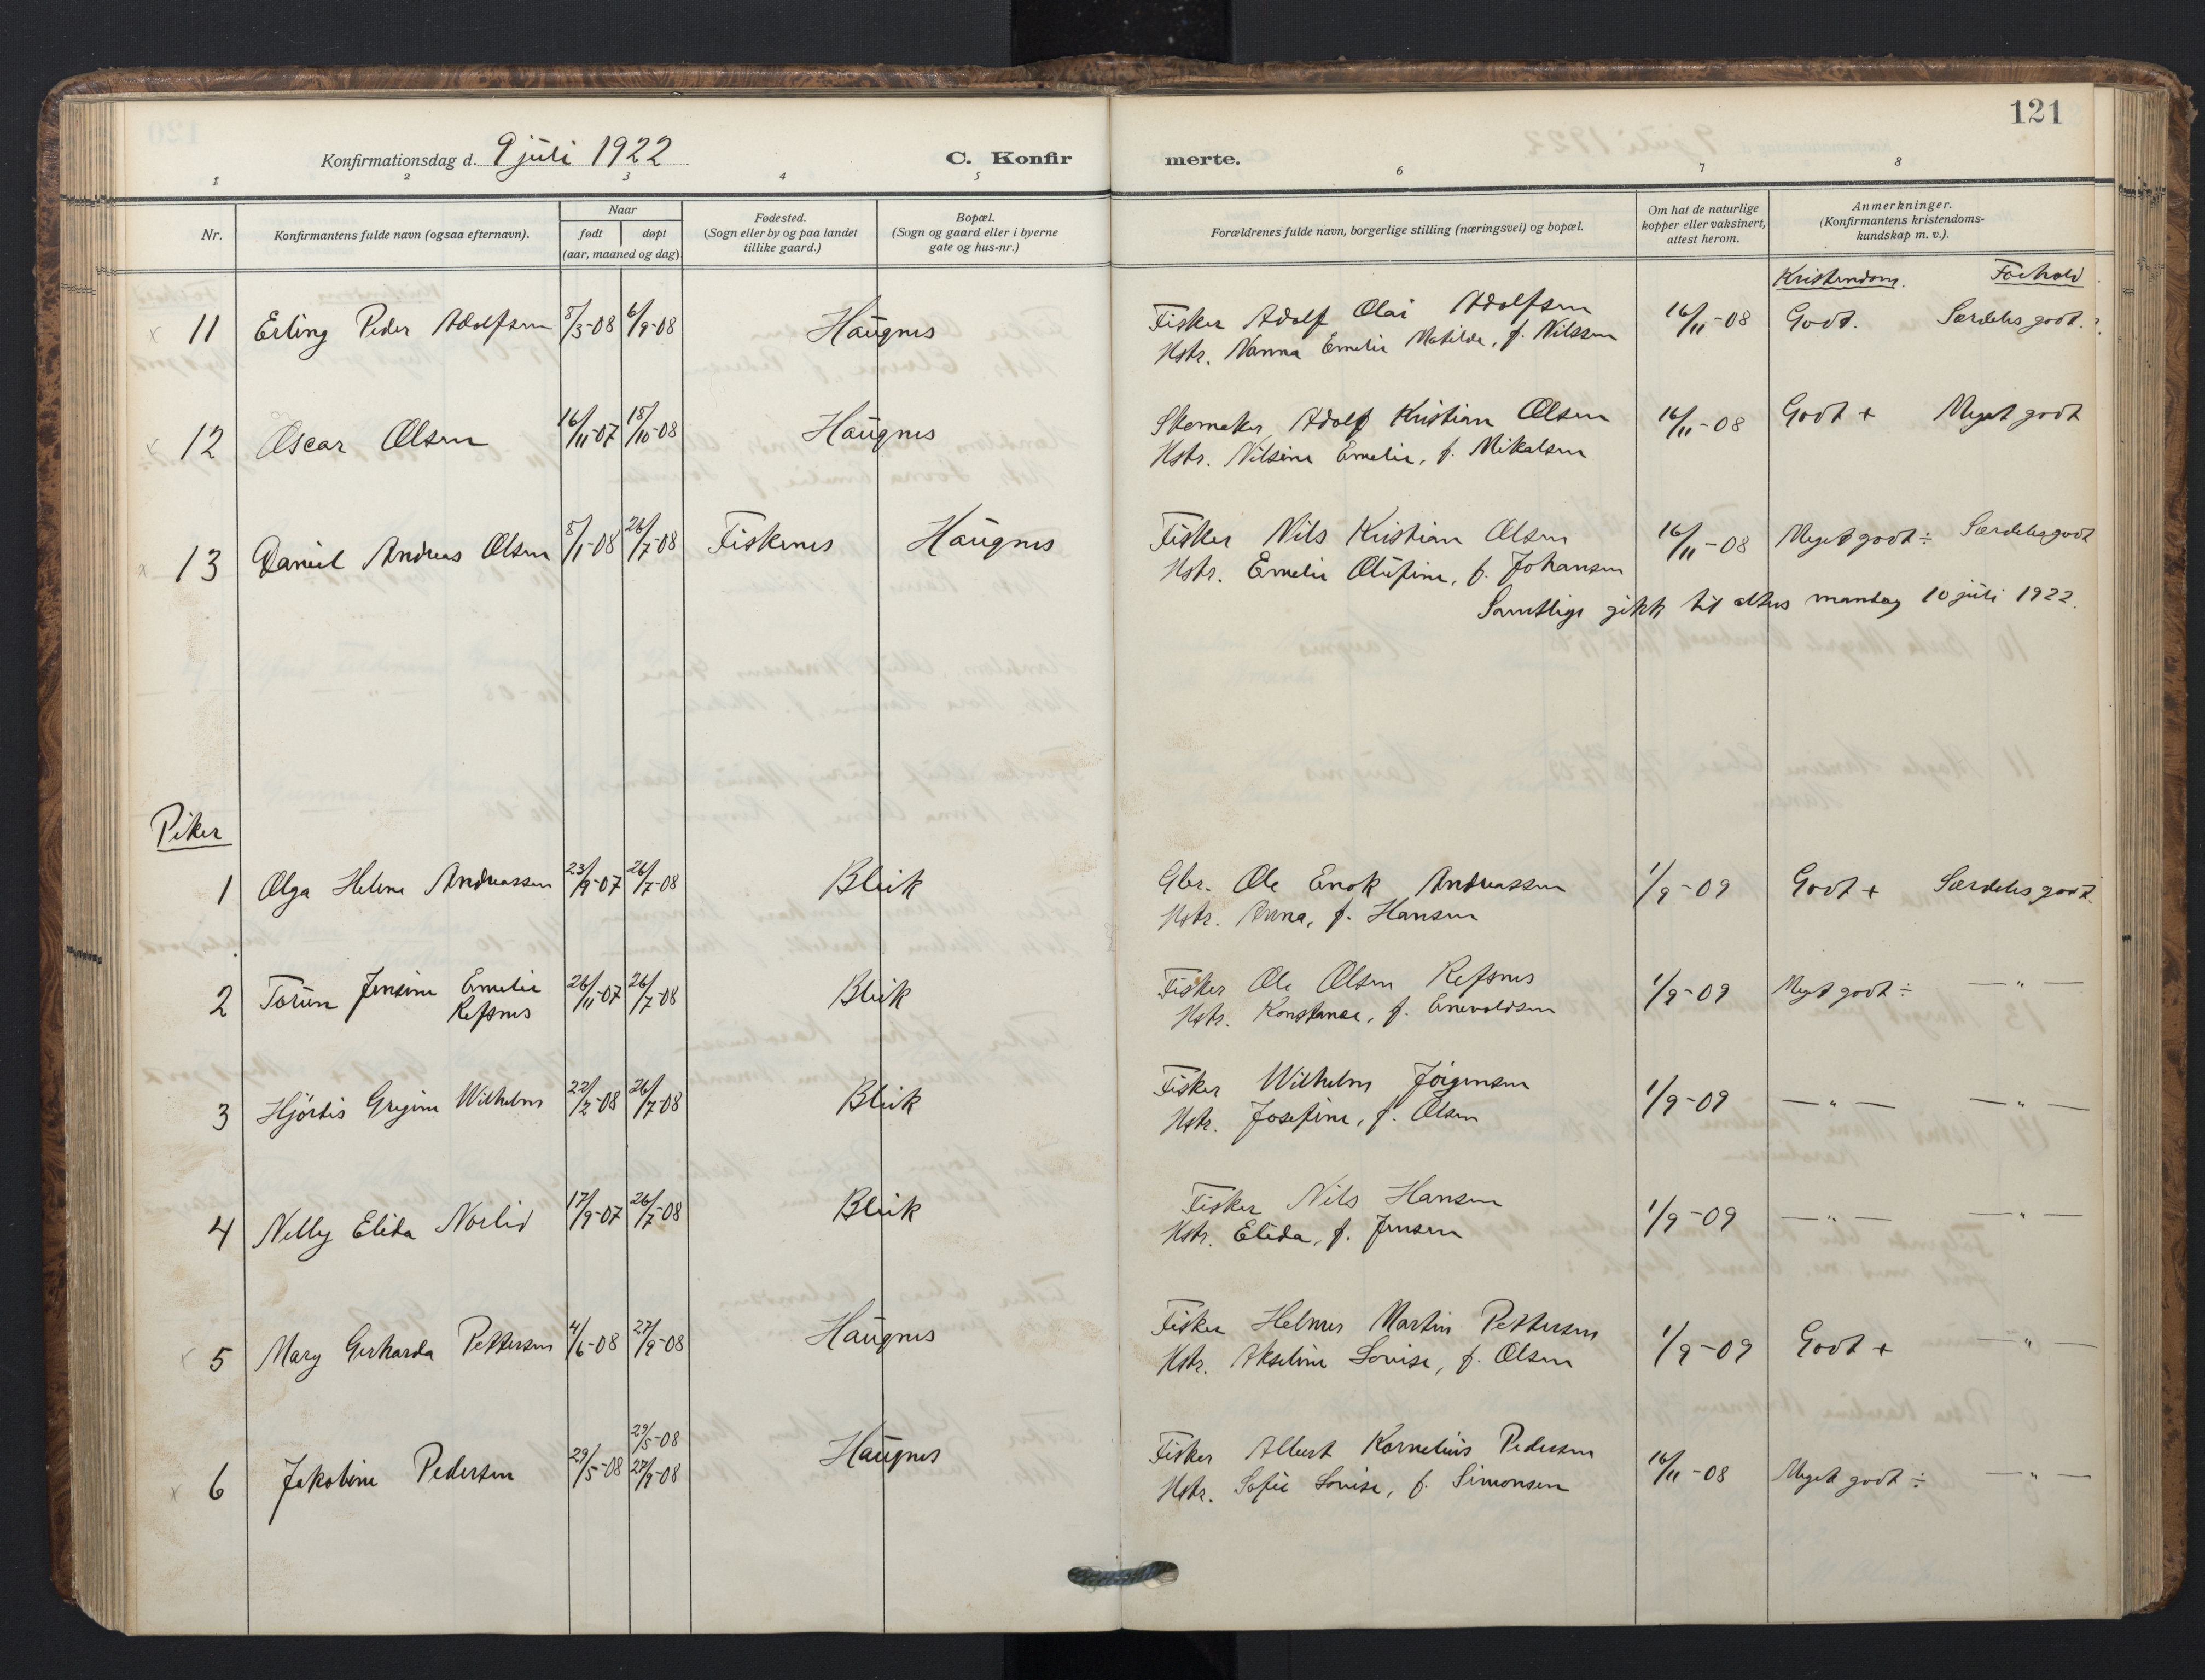 121
Konfirmationsdag d. 9 juli 1922
C. Konfirmerte.
1 2 3 4 5 6 7 8
Nr.
Konfirmantens fulde navn (ogsaa efternavn).
Naar
født
døpt
(aar, maaned og dag)
Fødested.
(Sogn eller by og paa landet
tillike gaard.)
Bopæl.
(Sogn og gaard eller i byerne
gate og hus-nr.)
Forældrenes fulde navn, borgerlige stilling (næringsvei) og bopæl.
Om hat de naturlige
kopper eller vaksinert,
attest herom.
Anmerkninger.
(Konfirmantens kristendoms-
kundskap m. v.).
Kristendom. Forhold
x 11 Erling Peder Adolfsen 8/3-08 6/9-08 Haugnes Fisker Adolf Olai Adolfsen 16/11-08 Godt. Særdeles godt.
Hstr. Nanna Emelie Matilde, f. Nilssen
x 12 Oscar Olsen 16/11-07 18/10-08 Haugnes Skomaker Adolf Kristian Olsen 16/11-08 Godt + Meget godt
Hstr. Nilsine Emelie, f. Mikalsen
x 13 Daniel Andreas Olsen 8/1-08 26/7-08 Fiskenes Haugnes Fisker Nils Kristian Olsen 16/11-08 Meget godt ÷ Særdeles godt
Hstr. Emelie Olufine, f. Johansen
Samtlige gikk til alters mandag 10 juli 1922.
Piker
1 Olga Helene Andreassen 23/9-07 26/7-08 Bleik Gbr. Ole Enok Andreassen 1/9-09 Godt + Særdeles godt.
Hstr. Anna, f. Hansen
2 Torun Jensine Emelie 26/11-07 26/7-08 Bleik Fisker Ole Olsen Refsnes 1/9-09 Meget godt ÷ — " —
Refsnes Hstr. Konstanse, f. Enevoldsen
3 Hjördis Gregine Wilhelms 22/2-08 26/7-08 Bleik Fisker Wilhelm Jörgensen 1/9-09 — " — — " —
Hstr. Josefine, f. Olsen
4 Nelly Elida Norlid 17/9-07 26/7-08 Bleik Fisker Nils Hansen 1/9-09 — " — — " —
Hstr. Elida, f. Jensen
x 5 Mary Gerharda Pettersen 4/6-08 27/9-08 Haugnes Fisker Helmer Martin Pettersen 1/9-09 Godt + — " —
Hstr. Akseline Lovise, f. Olsen
29/5-08
x 6 Jakobine Pedersen 29/5-08 27/9-08 Haugnes Fisker Albert Kornelius Pedersen 16/11-08 Meget godt ÷ — " —
Hstr. Sofie Lovise, f. Simonsen